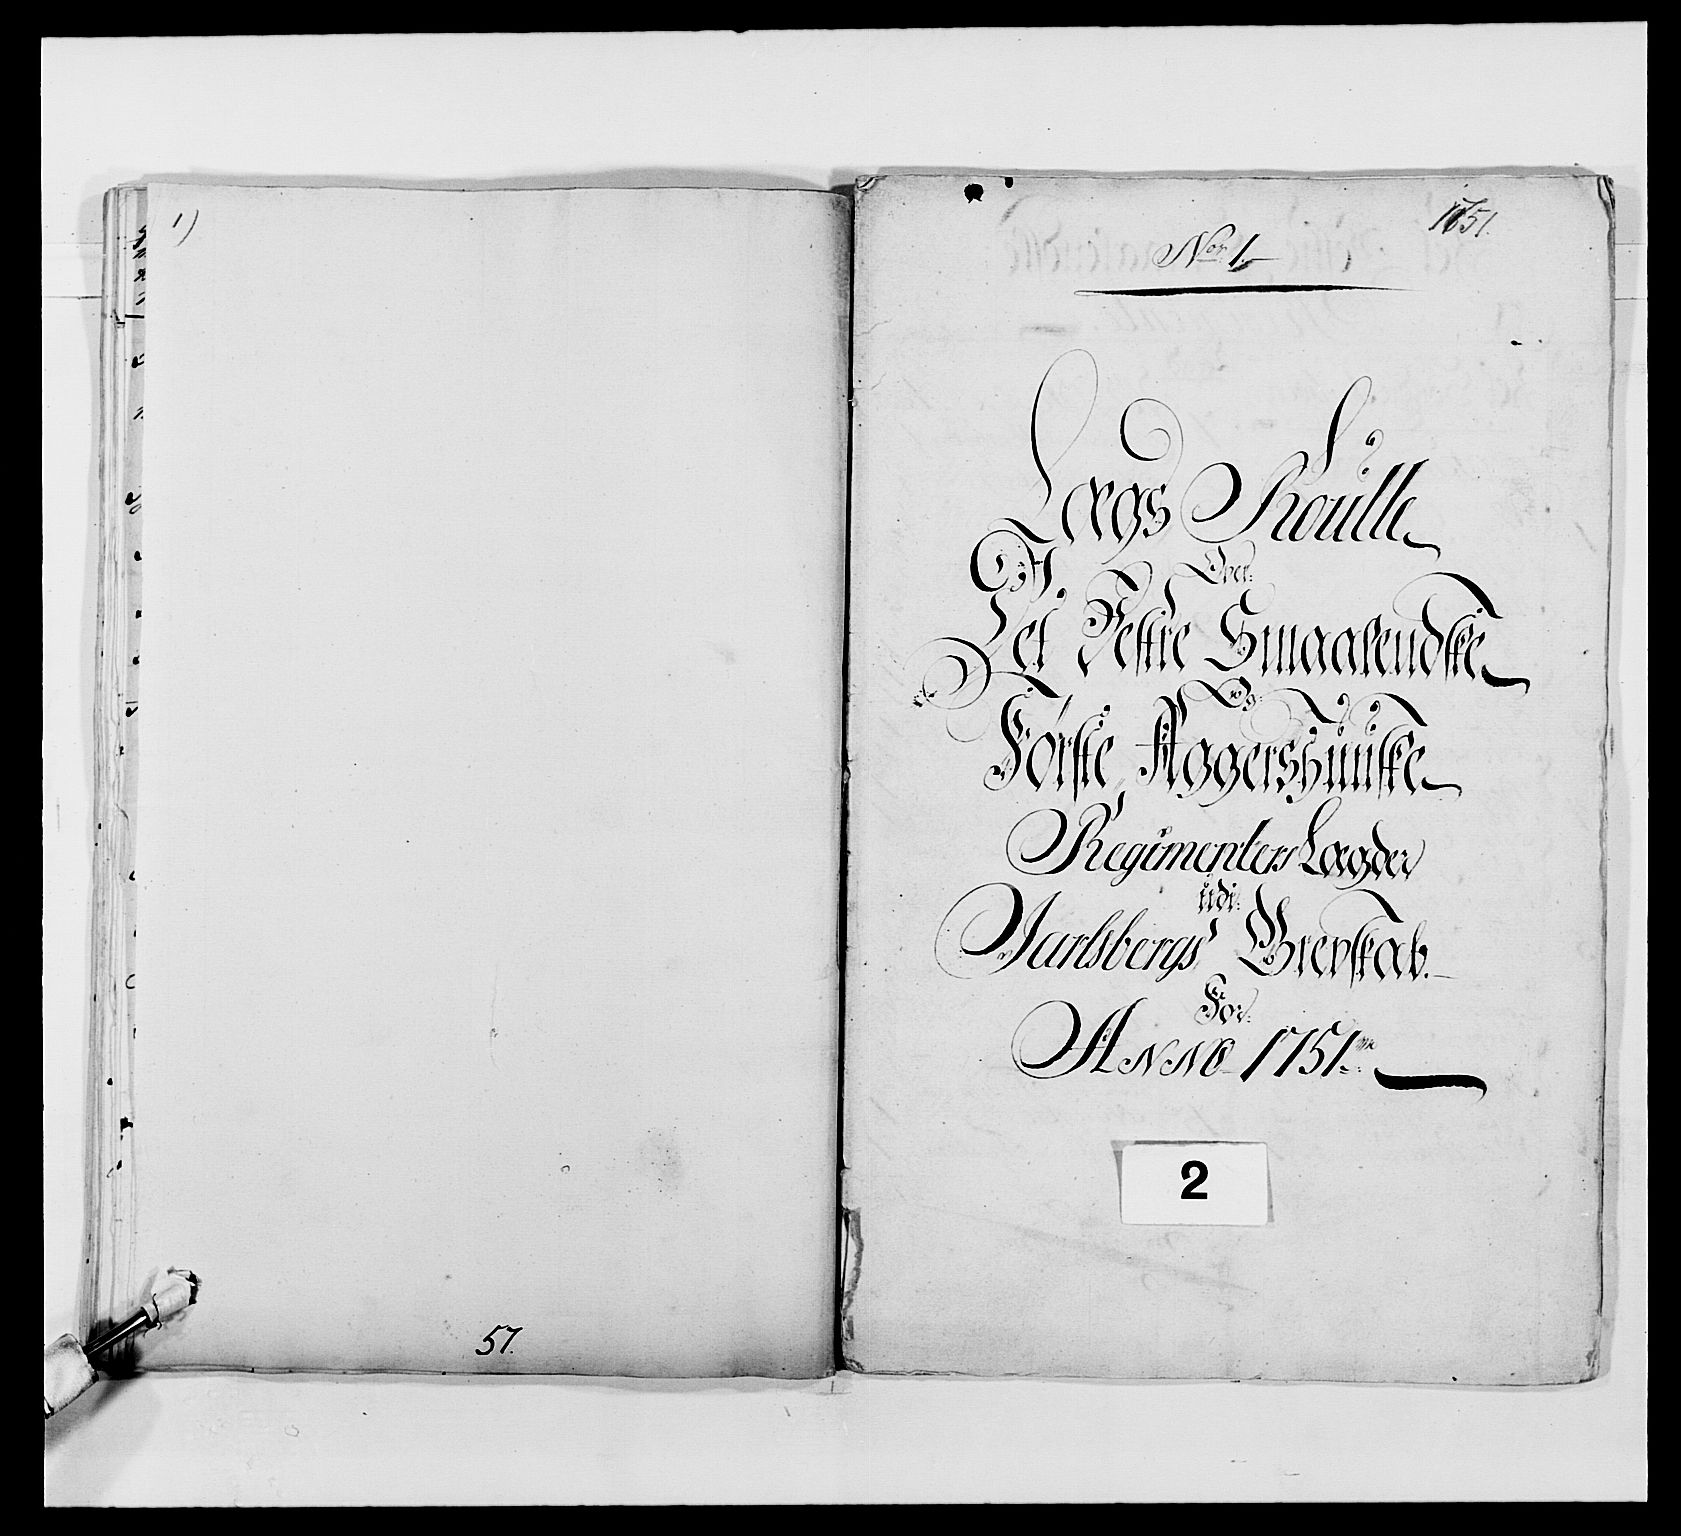 1)
57.
1751.
No 1.
Lægs Roulle
Over
Det Vestre Smaalendske
Og
Første Aggershuuske
Regimenters Lægder
udi
Jarlsbergs Grevskab.
For
ANNO 1751.
2